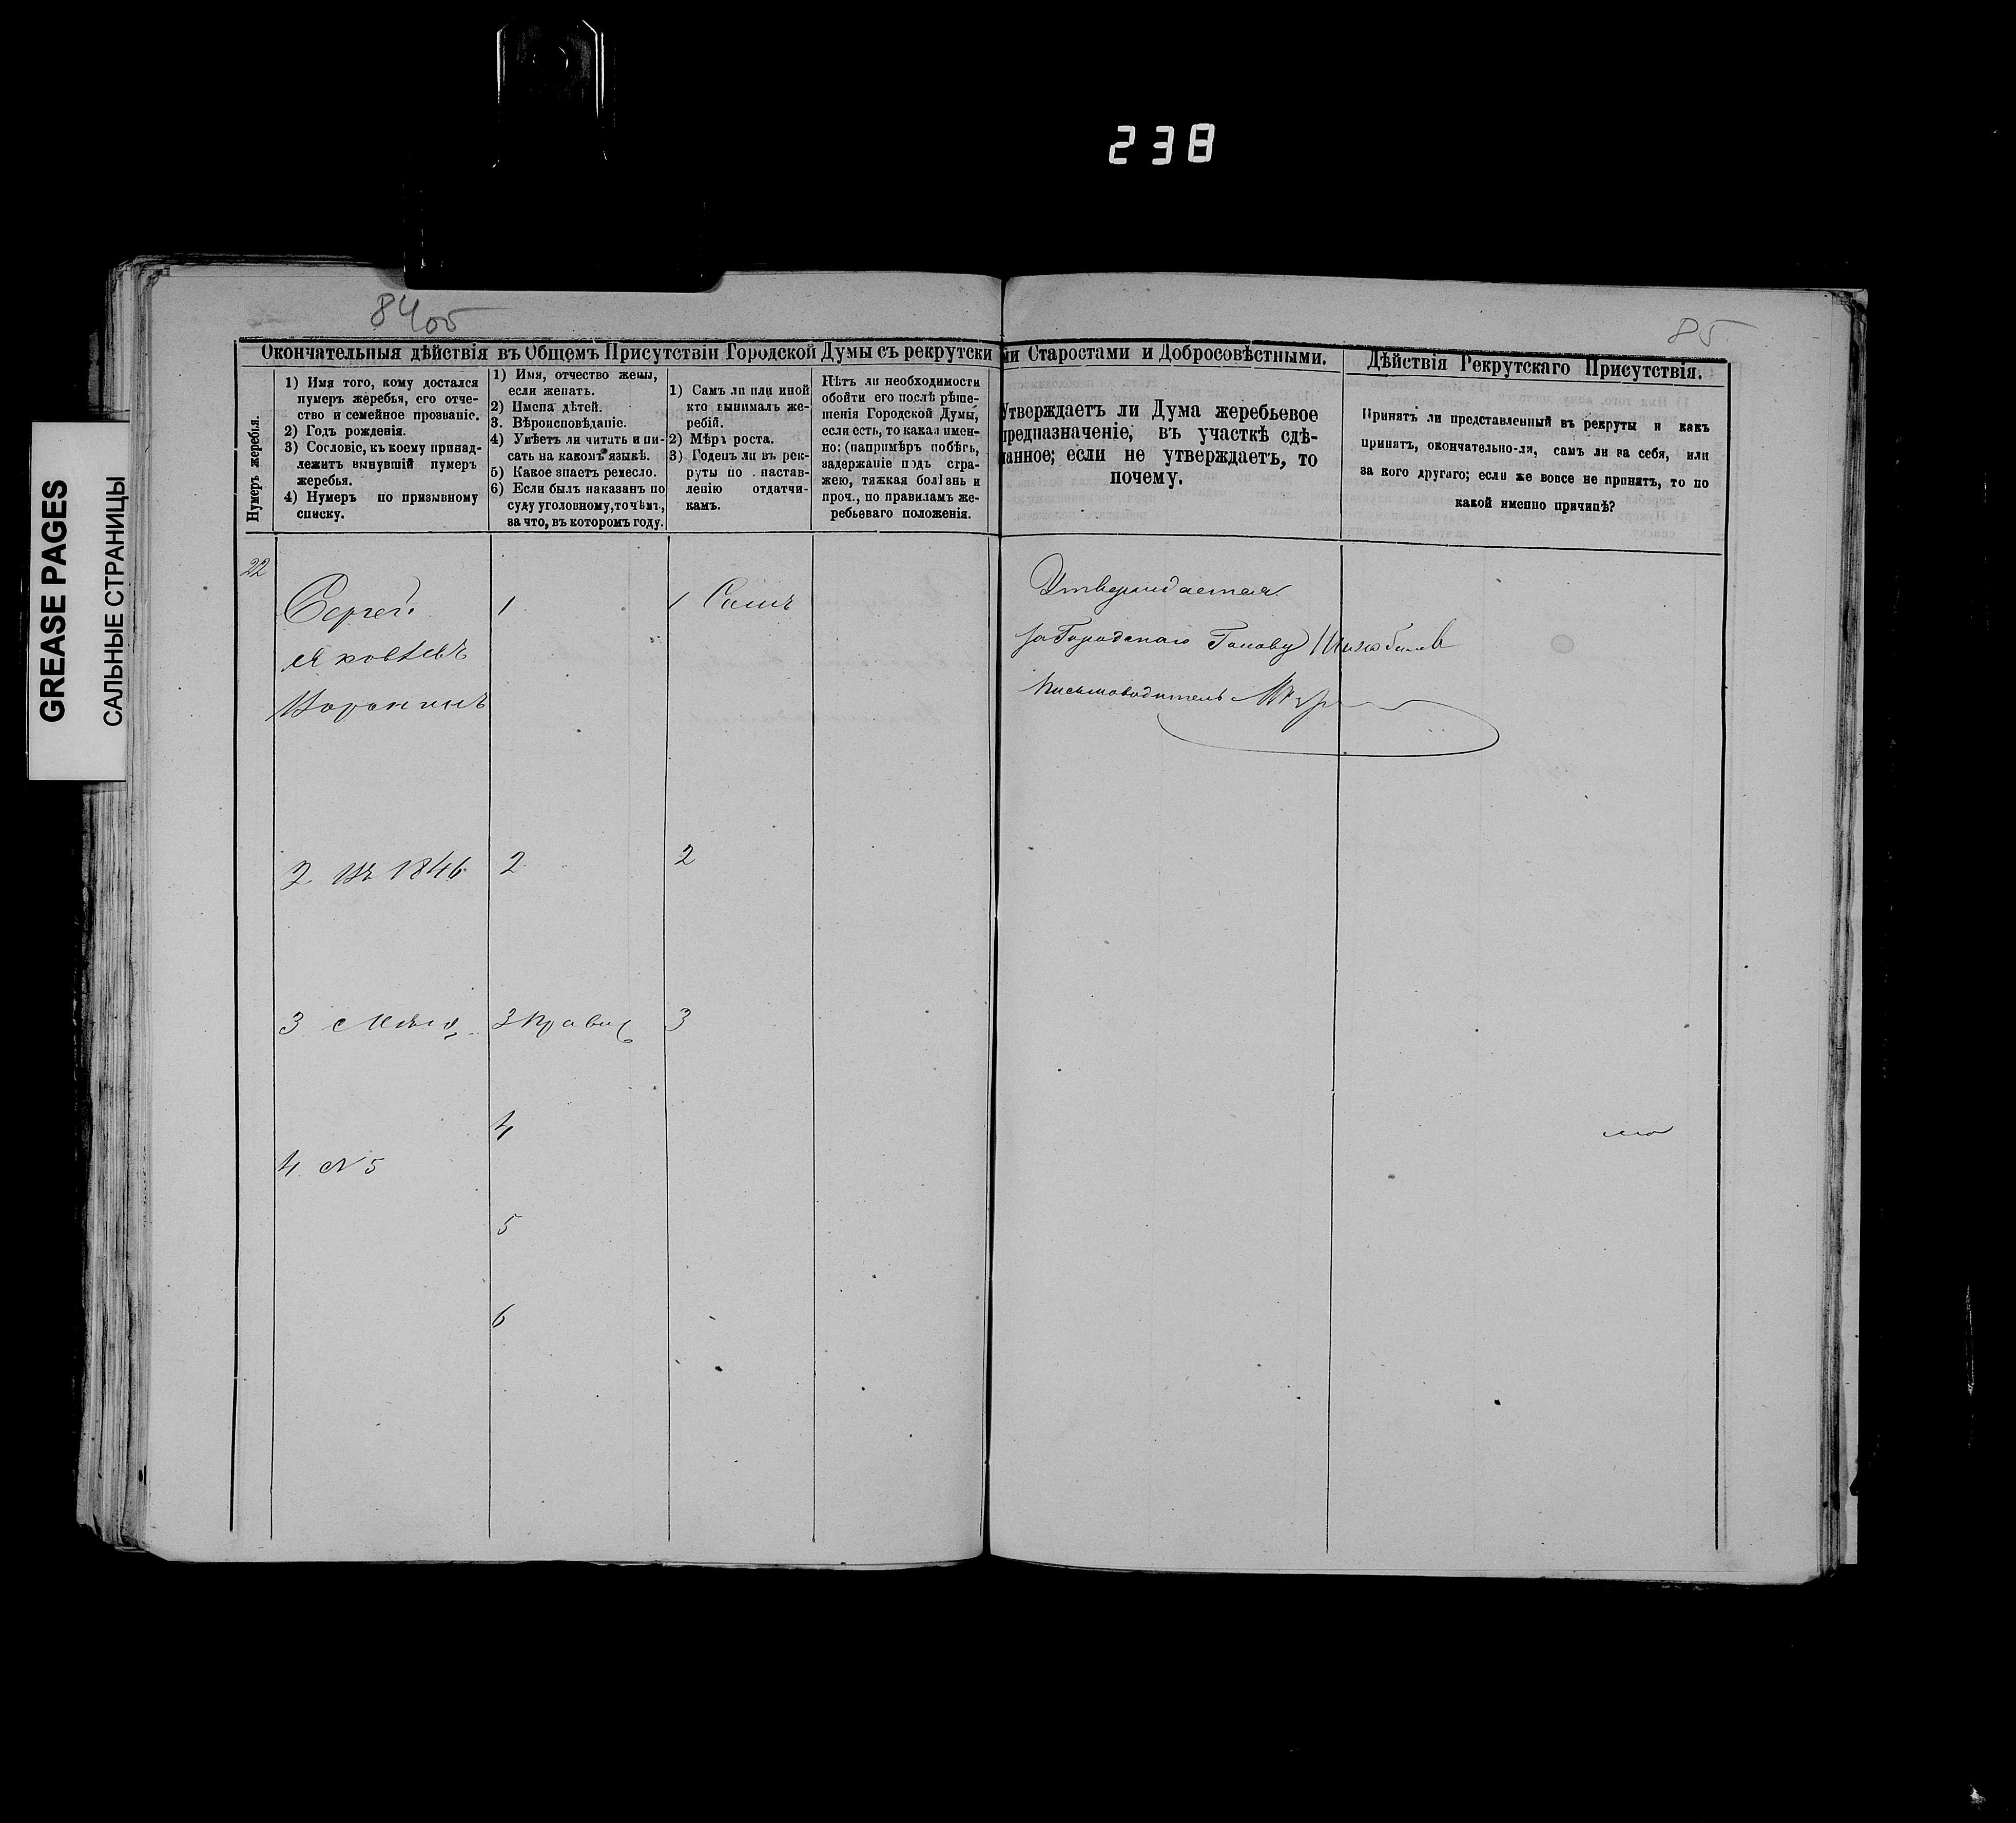 238
GREASE PAGES
САЛЬНЫЕ СТРАНИЦЫ
84об
85
Окончательныя дѣйствія въ Общемъ Присутствіи Городской Думы съ рекрутски
ми Старостами и Добросовѣстными.
Дѣйствія Рекрутскаго Присутствія.
Нумеръ жеребья.
1) Имя того, кому достался
нумеръ жеребья, его отче-
ство и семейное прозваніе.
2) Годъ рожденія.
3) Сословіе, къ коему принад-
лежитъ вынувшій нумеръ
жеребья.
4) Нумеръ по призывному
списку.
1) Имя, отчество жены,
если женатъ.
2) Имена дѣтей.
3. Вѣроисповѣданіе.
4) Умѣетъ ли читать и пи-
сать на какомъ языкѣ.
5) Какое знаетъ ремесло.
6) Если былъ наказанъ по
суду уголовному, то чѣмъ,
за что, въ которомъ году.
1) Самъ ли или иной
кто вынималъ же-
ребій.
2) Мѣра роста.
3) Годенъ ли въ рек-
руты по настав-
ленію отдатчи-
камъ.
Нѣтъ ли необходимости
обойти его послѣ рѣше-
шенія Городской Думы,
если есть, то какая имен-
но: (напримѣръ побѣгъ,
задержаніе подъ стра-
жею, тяжкая болѣзнь и
проч., по правиламъ же-
ребьеваго положенія.
Утверждаетъ ли Дума жеребьевое
предназначеніе, въ участкѣ сдѣ-
ланное; если не утверждаетъ, то
почему.
Принятъ ли представленный въ рекруты и какъ
принятъ, окончательно-ли, самъ ли за себя, или
за кого другаго; если же вовсе не принятъ, то по
какой именно причинѣ?
22
Сергей
Яковлевъ
Воронинъ
2 Въ 1846
3 Мѣщ.
4. N 5
1
2
3 Правос
4
5
6
1 Самъ
2
3
Утверждается
за Городскаго Голову
Письмоводитель